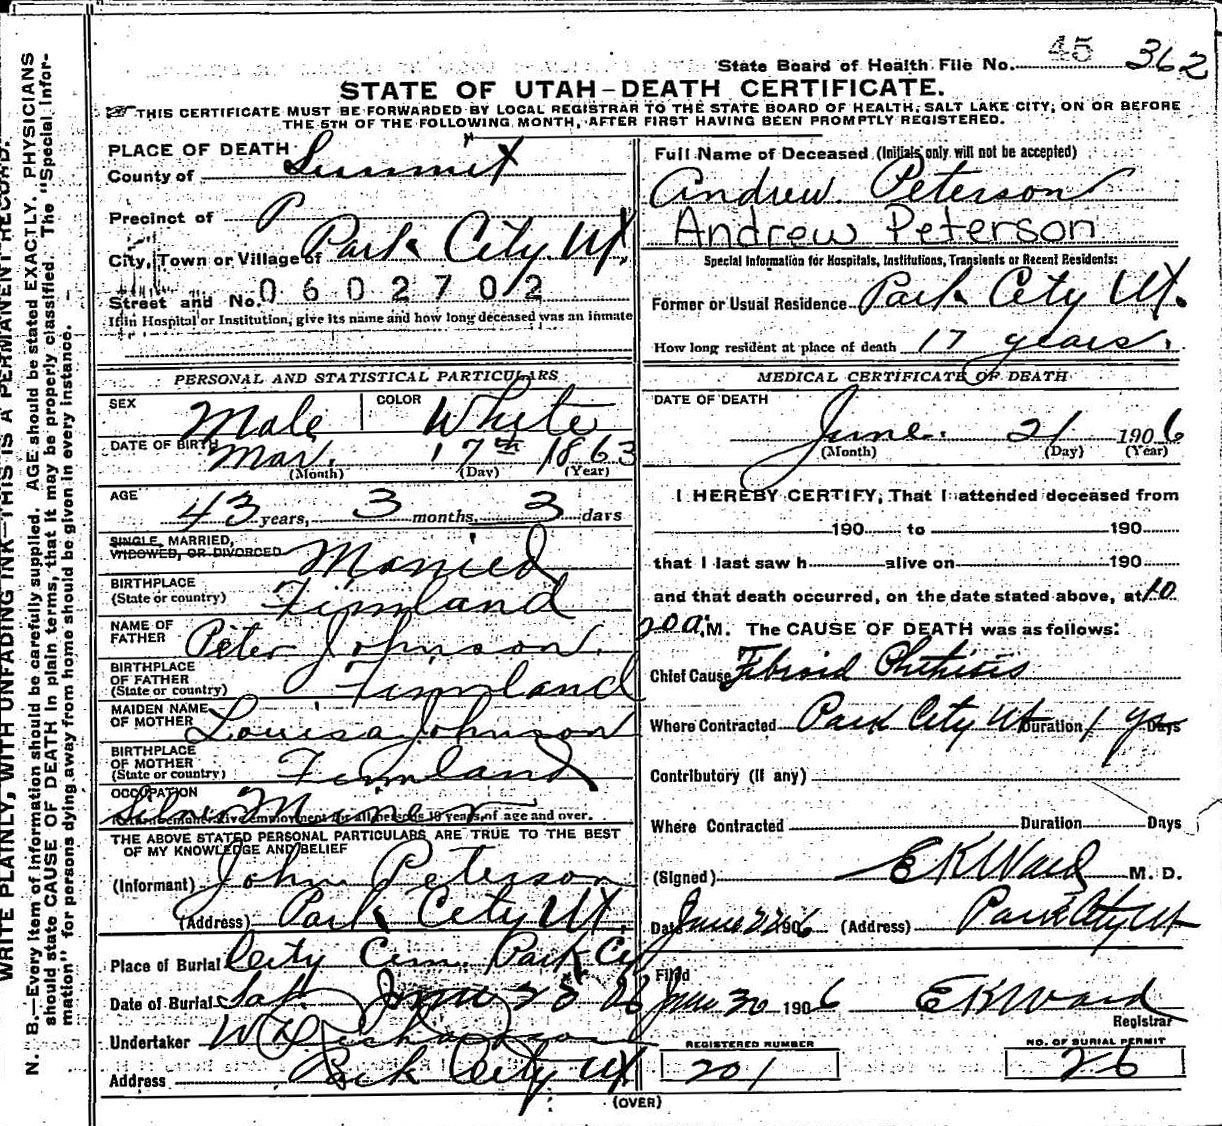 WRITE PLAINLY, WITH UNFADING INK—THIS IS A PERMANENT RECORD.
N. B.—Every item of information should be carefully supplied. AGE should be stated EXACTLY. PHYSICIANS
should state CAUSE OF DEATH in plain terms, that it may be properly classified. The "Special Infor-
mation" for persons dying away from home should be given in every instance.
45 362
State Board of Health File No.
STATE OF UTAH—DEATH CERTIFICATE.
THIS CERTIFICATE MUST BE FORWARDED BY LOCAL REGISTRAR TO THE STATE BOARD OF HEALTH, SALT LAKE CITY, ON OR BEFORE
THE 5TH OF THE FOLLOWING MONTH, AFTER FIRST HAVING BEEN PROMPTLY REGISTERED.
PLACE OF DEATH
County of Summit
Precinct of P
City, Town or Village of Park City Ut.
Street and No. 0602702
If in Hospital or Institution, give its name and how long deceased was an inmate
PERSONAL AND STATISTICAL PARTICULARS
SEX Male COLOR White
DATE OF BIRTH Mar. 17th 1863
(Month) (Day) (Year)
AGE 43 years, 3 months, 3 days
SINGLE, MARRIED,
WIDOWED, OR DIVORCED Married
BIRTHPLACE
(State or country) Finnland
NAME OF
FATHER Peter Johnson.
BIRTHPLACE
OF FATHER
(State or country) Finnland
MAIDEN NAME
OF MOTHER Louisa Johnson
BIRTHPLACE
OF MOTHER
(State or country) Finnland
OCCUPATION
Silver Miner
of age and over.
THE ABOVE STATED PERSONAL PARTICULARS ARE TRUE TO THE BEST
OF MY KNOWLEDGE AND BELIEF
(Informant) John Peterson
(Address) Park City Ut.
Place of Burial City Cem. Park Cy
Date of Burial Sat. June 23
Undertaker
Address Park City Ut
Full Name of Deceased (Initials only will not be accepted)
Andrew Peterson
Andrew Peterson
Special Information for Hospitals, Institutions, Transients or Recent Residents:
Former or Usual Residence Park City Ut.
How long resident at place of death 17 years.
MEDICAL CERTIFICATE OF DEATH
DATE OF DEATH
June. 21 1906
(Month) (Day) (Year)
I HEREBY CERTIFY, That I attended deceased from
190 to 190
that I last saw h alive on 190
and that death occurred, on the date stated above, at 10
20 a. M. The CAUSE OF DEATH was as follows:
Chief Cause Fibroid Phthisis
Where Contracted Park City Ut Duration 1 yr Days
Contributory (if any)
Where Contracted Duration Days
(Signed) E K Ward M. D.
Date June 22 1906 (Address) Park City Ut
Filed
June 30 1906 E K Ward
Registrar
REGISTERED NUMBER
201
NO. OF BURIAL PERMIT
26
(OVER)